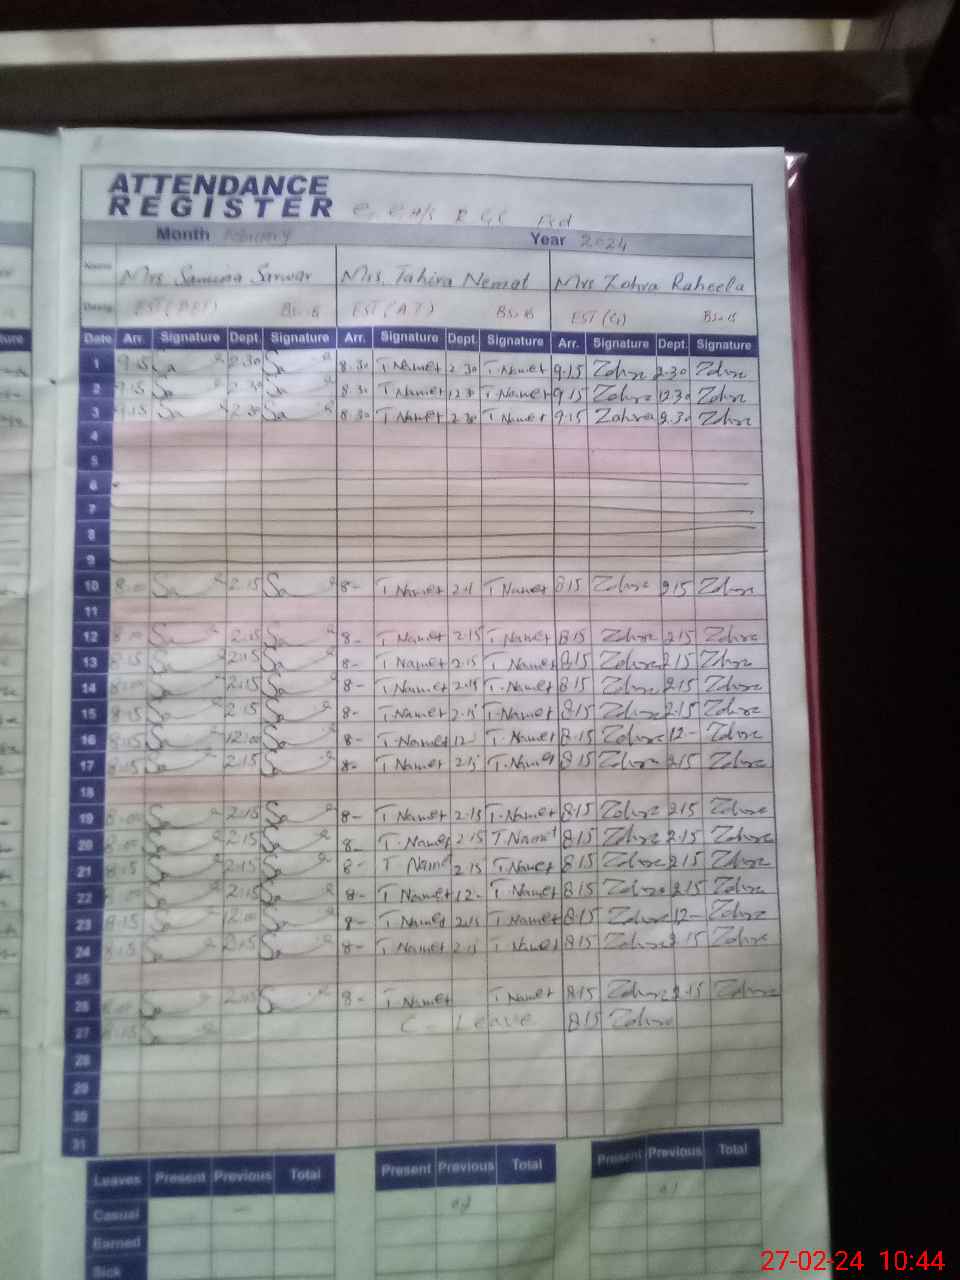 ATTENDANCE
REGISTER
Month February Year 2024
Name Mrs Samina Sarwar Mrs. Tahira Nemat Mrs Zohra Raheela
EST ( A T ) EST
Date Arr. Signature Dept. Signature Arr. Signature Dept. Signature Arr. Signature Dept. Signature
1 9.15 Sa 2.30 Sa 8.30 T Namet 2.30 T. Namet 9.15 Zohra 2.30 Zohra
2 9.15 Sa 2.30 Sa 8.30 T Namet 12.30 T Namet 9.15 Zohra 12.30 Zohra
3 9.15 Sa 2.30 Sa 8.30 T Namet 2.30 T Namet 9.15 Zohra 2.30 Zohra
4
5
6
7
8
9
10 8.00 Sa 2.15 Sa 8- T Namet T Namet 8.15 Zohra 2.15 Zohra
11
12 8.00 Sa 2.15 Sa 8- T Namet 2.15 T Namet 8.15 Zohra 2.15 Zohra
13 8.15 Sa 2.15 Sa 8- T Namet 2.15 T Namet 8.15 Zohra 2.15 Zohra
14 8.00 Sa 2.15 Sa 8- T Namet 2.15 T. Namet 8.15 Zohra 2.15 Zohra
15 8.15 Sa 2.15 Sa 8- T Namet 2.15 T. Namet 8.15 Zohra 2.15 Zohra
16 8.15 Sa 12.00 Sa 8- T. Namet 12- T. Namet 8.15 Zohra 12- Zohra
17 8.15 Sa 2.15 Sa 8- T Namet 2.15 T. Namet 8.15 Zohra 2.15 Zohra
18
19 8.00 Sa 2.15 Sa 8- T Namet 2.15 T. Namet 8.15 Zohra 2.15 Zohra
20 8.00 Sa 2.15 Sa 8- T. Namet 2.15 T Namet 8.15 Zohra 2.15 Zohra
21 8.15 Sa 2.15 Sa 8- T Namet 2.15 T. Namet 8.15 Zohra 2.15 Zohra
22 Sa 2.15 Sa 8- T Namet 12- T. Namet 8.15 Zohra 2.15 Zohra
23 8.15 Sa 12.00 Sa 8- T Namet 2.15 T Namet 8.15 Zohra 12- Zohra
24 8.15 Sa 2.15 Sa 8- T Namet 2.15 T. Namet 8.15 Zohra 2.15 Zohra
25
26 8.00 Sa 2.15 Sa 8- T. Namet T Namet 8.15 Zohra 2.15 Zohra
27 8.15 Sa C - Leave 8.15 Zohra
28
29
30
31
Leaves Present Previous Total Present Previous Total Present Previous Total
Casual
Earned
Sick
27-02-24 10:44